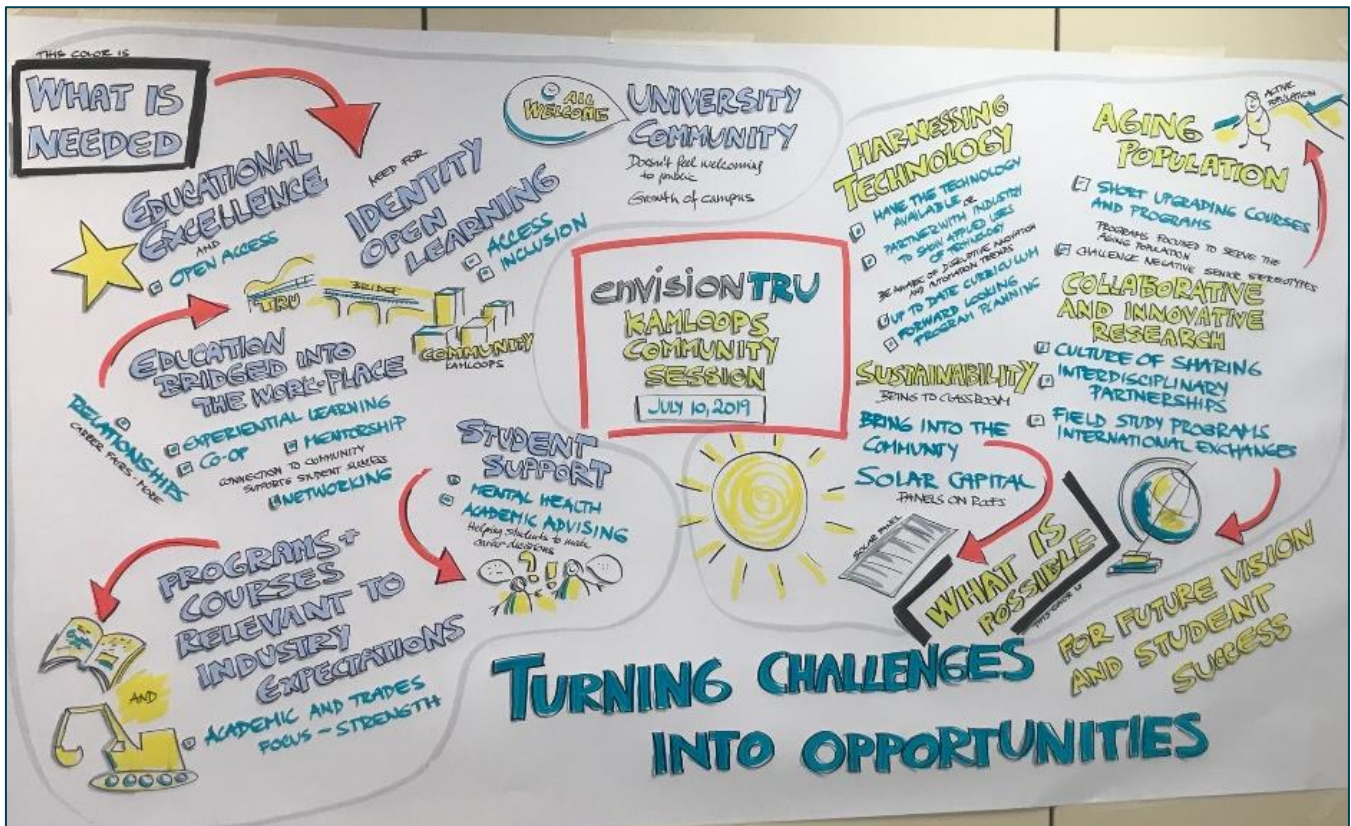 THIS COLOR IS
WHAT IS
NEEDED
EDUCATIONAL
EXCELLENCE
AND
OPEN ACCESS
NEED FOR
IDENTITY
OPEN
LEARNING
ACCESS
INCLUSION
ALL
WELCOME
UNIVERSITY
COMMUNITY
Doesn't feel welcoming
to public
Growth of campus
TRU
BRIDGE
COMMUNITY
KAMLOOPS
EDUCATION
BRIDGED INTO
THE WORK-PLACE
RELATIONSHIPS
CAREER FAIRS - MORE
EXPERIENTIAL LEARNING
CO-OP
MENTORSHIP
CONNECTION TO COMMUNITY
SUPPORTS STUDENT SUCCESS
NETWORKING
STUDENT
SUPPORT
MENTAL HEALTH
ACADEMIC ADVISING
Helping students to make
career decisions
??
PROGRAMS +
COURSES
RELEVANT TO
INDUSTRY
EXPECTATIONS
AND
ACADEMIC AND TRADES
FOCUS - STRENGTH
envisionTRU
KAMLOOPS
COMMUNITY
SESSION
JULY 10, 2019
HARNESSING
TECHNOLOGY
HAVE THE TECHNOLOGY
AVAILABLE OR
PARTNER WITH INDUSTRY
TO SHOW APPLIED USES
OF TECHNOLOGY
BE AWARE OF DISRUPTIVE INNOVATION
AND AUTOMATION TRENDS
UP TO DATE CURRICULUM
FORWARD LOOKING
PROGRAM PLANNING
SUSTAINABILITY
BRING TO CLASSROOM
BRING INTO THE
COMMUNITY
SOLAR CAPITAL
PANELS ON ROOFS
SOLAR PANEL
AGING
POPULATION
ACTIVE
POPULATION
SHORT UPGRADING COURSES
AND PROGRAMS
PROGRAMS FOCUSED TO SERVE THE
AGING POPULATION
CHALLENGE NEGATIVE SENIOR STEREOTYPES
COLLABORATIVE
AND INNOVATIVE
RESEARCH
CULTURE OF SHARING
INTERDISCIPLINARY
PARTNERSHIPS
FIELD STUDY PROGRAMS
INTERNATIONAL EXCHANGES
WHAT IS
POSSIBLE
THIS COLOR IS
FOR FUTURE VISION
AND STUDENT
SUCCESS
TURNING CHALLENGES
INTO OPPORTUNITIES